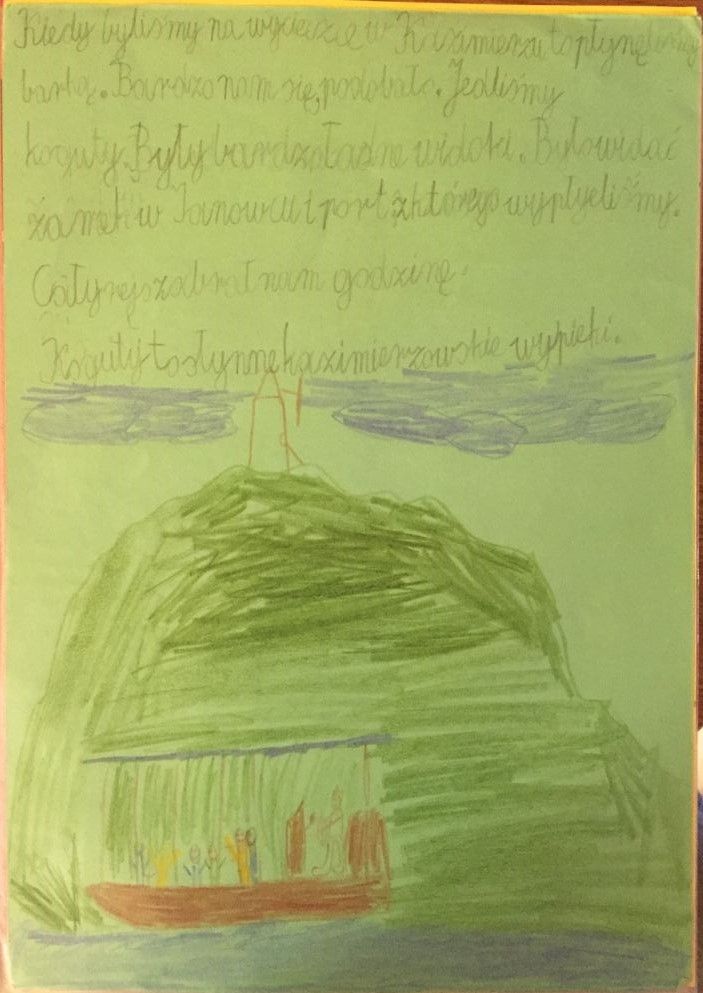 Kiedy byliśmy na wycieczce w Kazimierzu to płynęliśmy
barką. Bardzo nam się podobało. Jedliśmy
koguty. Były bardzo ładne widoki. Było widać
zamek w Janowcu i port z którego wypłyneliśmy.
Cały rejs zabrał nam godzinę.
Koguty to słynne kazimierzowskie wypieki.